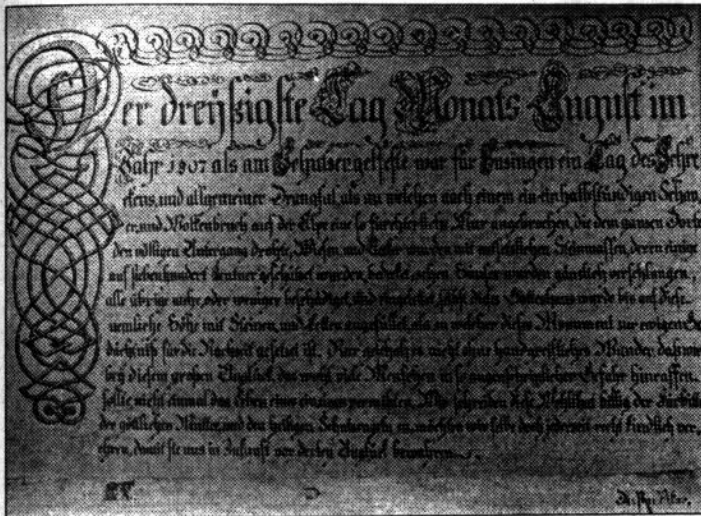 Der dreÿssigste Tag Monats August im
Jahr 1807 als am war für ein Tag des Schre
ckens, und allgemeiner Drangsal, als an welchen nach einem ein einhalbstündigen Schau
er, und Wolkenbruch auf der Alpe eine so angebrochen, die dem ganzen Dorfe
den völligen Untergang drohte, Wiesen, und wurden mit Steinmassen, deren einige
auf siebenhundert Centner geschätzet wurden, Häuser wurden gänzlich verschlungen,
alle übrige mehr, oder weniger beschädiget, und dieses Gotteshaus wurde bis auf diese
nemliche Höhe mit Steinen, und angefüllet, als an welcher dieses Monument zur ewigen Ge
dächtniß für die Nachwelt gesetzet ist. Hier geschah es nicht ohne handgreifliches Wunder, daß
bey diesem großen Unglück, das sonst viele Menschen in so augenscheinlicher Gefahr hinraffen
sollte nicht einmal das Leben eines einzigen Wir schreiben diese billig der Fürbitte
der göttlichen Mutter, und den heiligen Schutzengeln zu, möchten wir selbe doch jederzeit recht kindlich ver
ehren, damit sie uns in Zukunft vor derley Unglück bewahren.